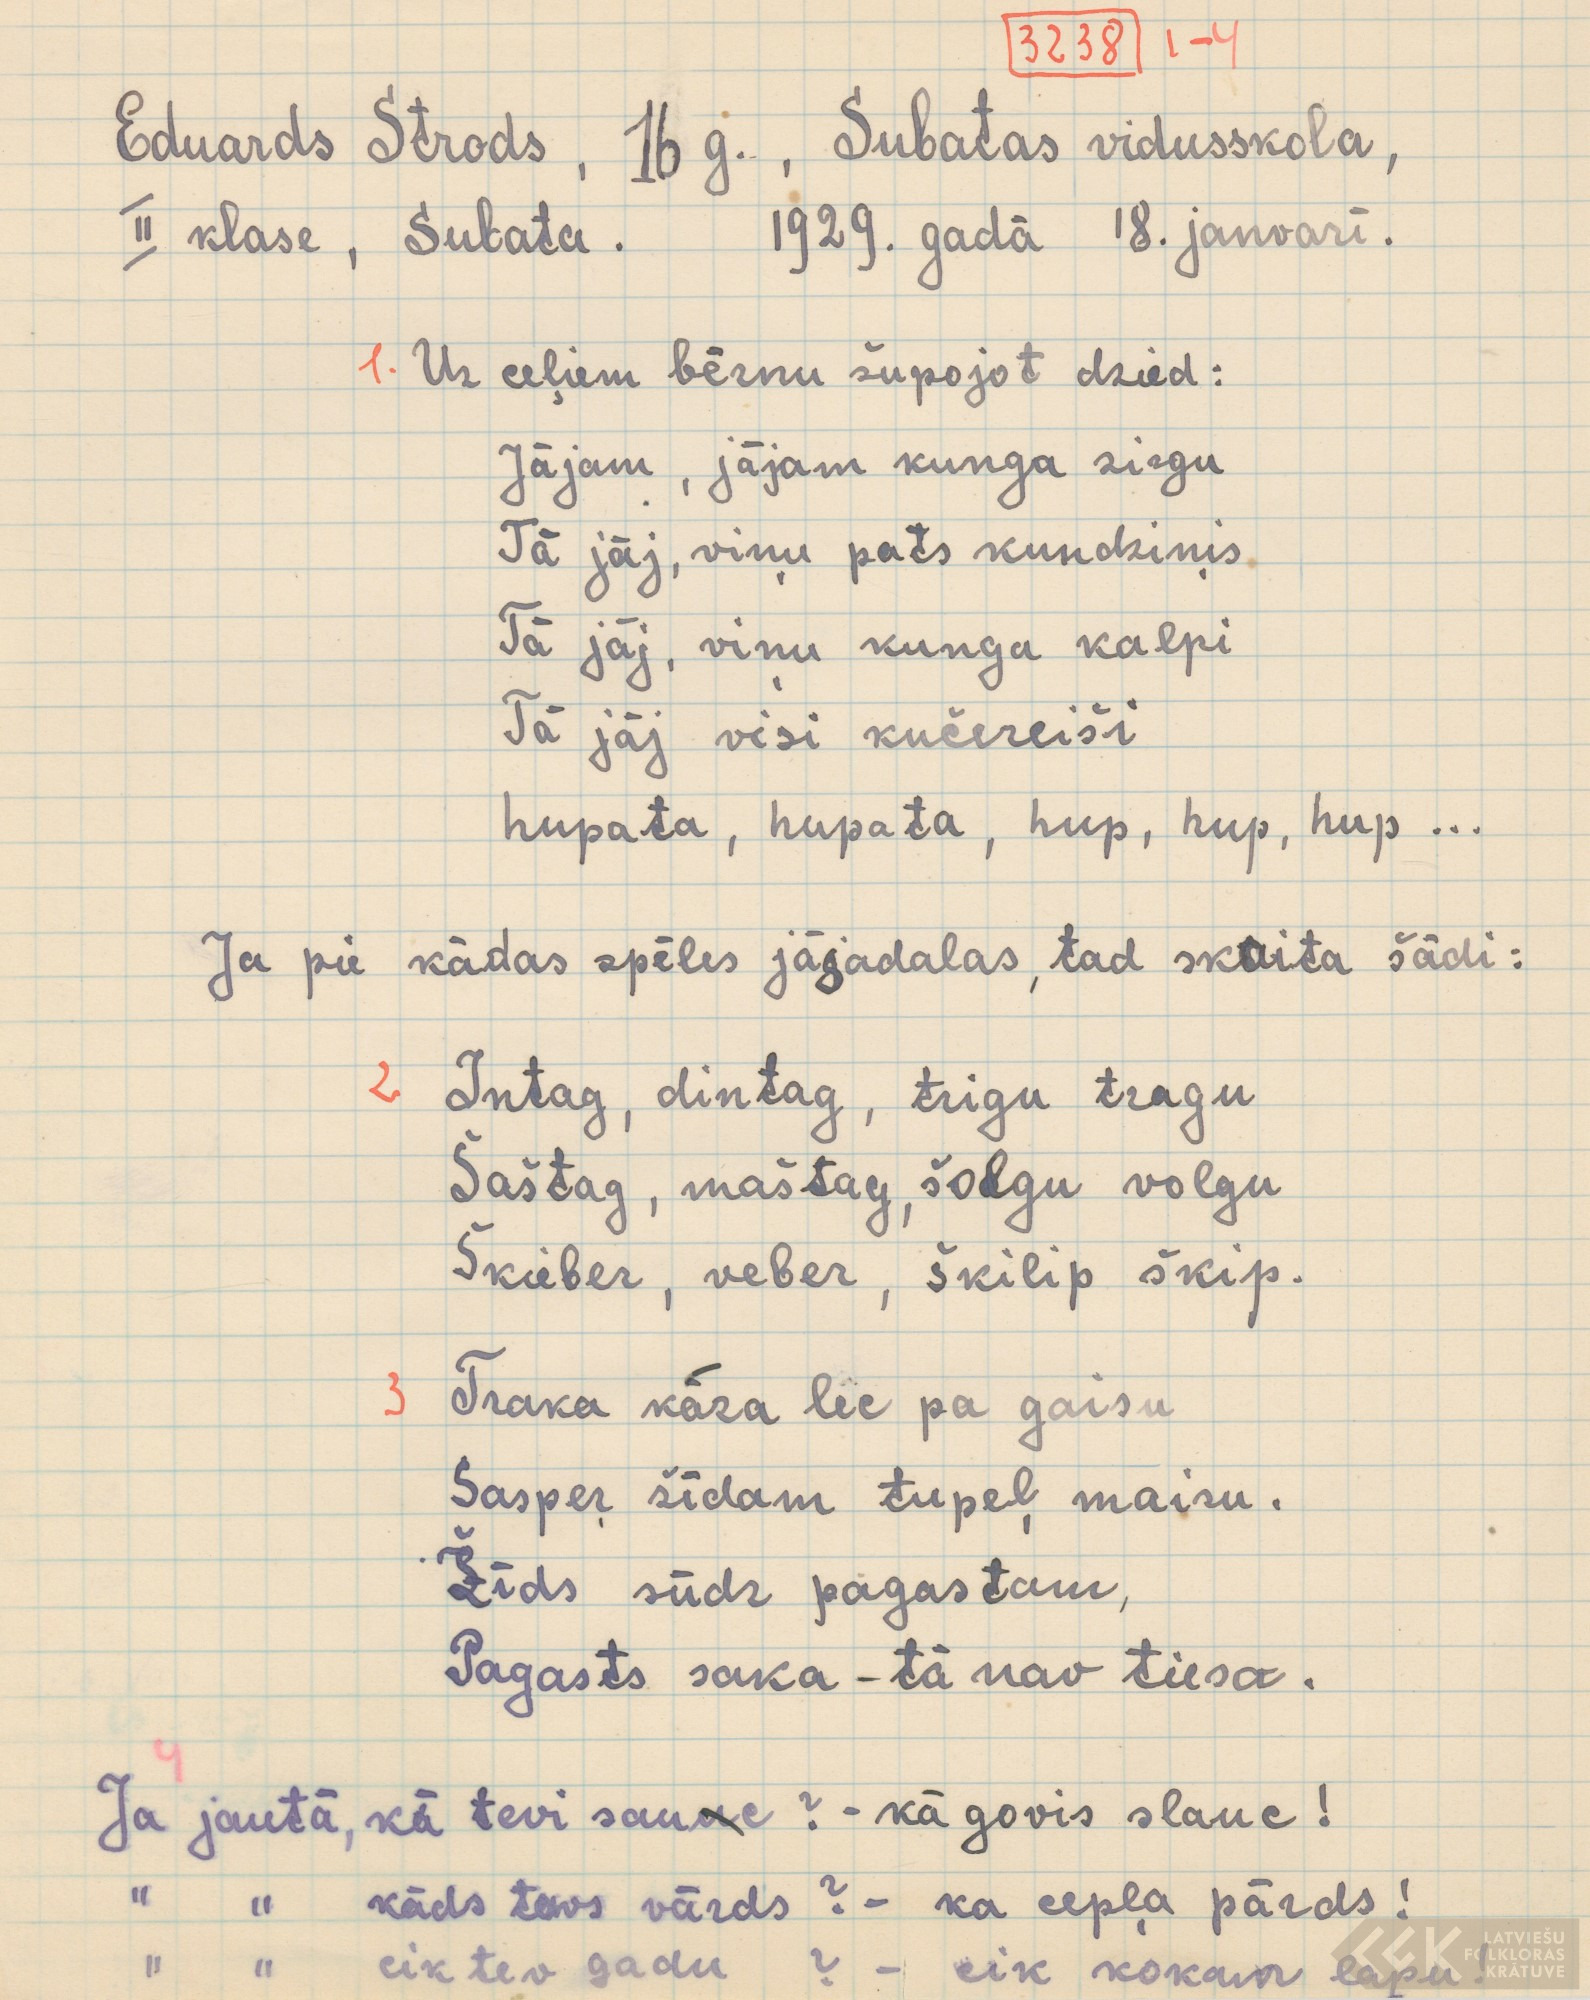 3238 1-4
Eduards Strods, 16 g., Subatas vidusskola,
II klase, Subata. 1929. gadā 18. janvarī.
1. Uz ceļiem bērnu šupojot dzied:
Jājam, jājam kunga zirgu
Tā jāj, viņu pats kundziņis
Tā jāj, viņu kunga kalpi
Tā jāj visi kučereiši
hupata, hupata, hup, hup, hup ...
Ja pie kādas spēles jāsadalas, tad skaita šādi:
2 Intag, dintag, trigu tragu
Šaštag, maštag, šolgu volgu
Škieber, veber, škilip škip.
3 Traka kāza lec pa gaisu
Sasper žīdam tupeļ maisu.
Žīds sūdz pagastam,
Pagasts saka - tā nav tiesa.
4
Ja jautā, kā tevi sauc? - kā govis slauc!
" " kāds tavs vārds? - ka cepļa pārds!
" " cik tev gadu ? - cik kokam lapu!
LATVIEŠU
FOLKLORAS
KRĀTUVE